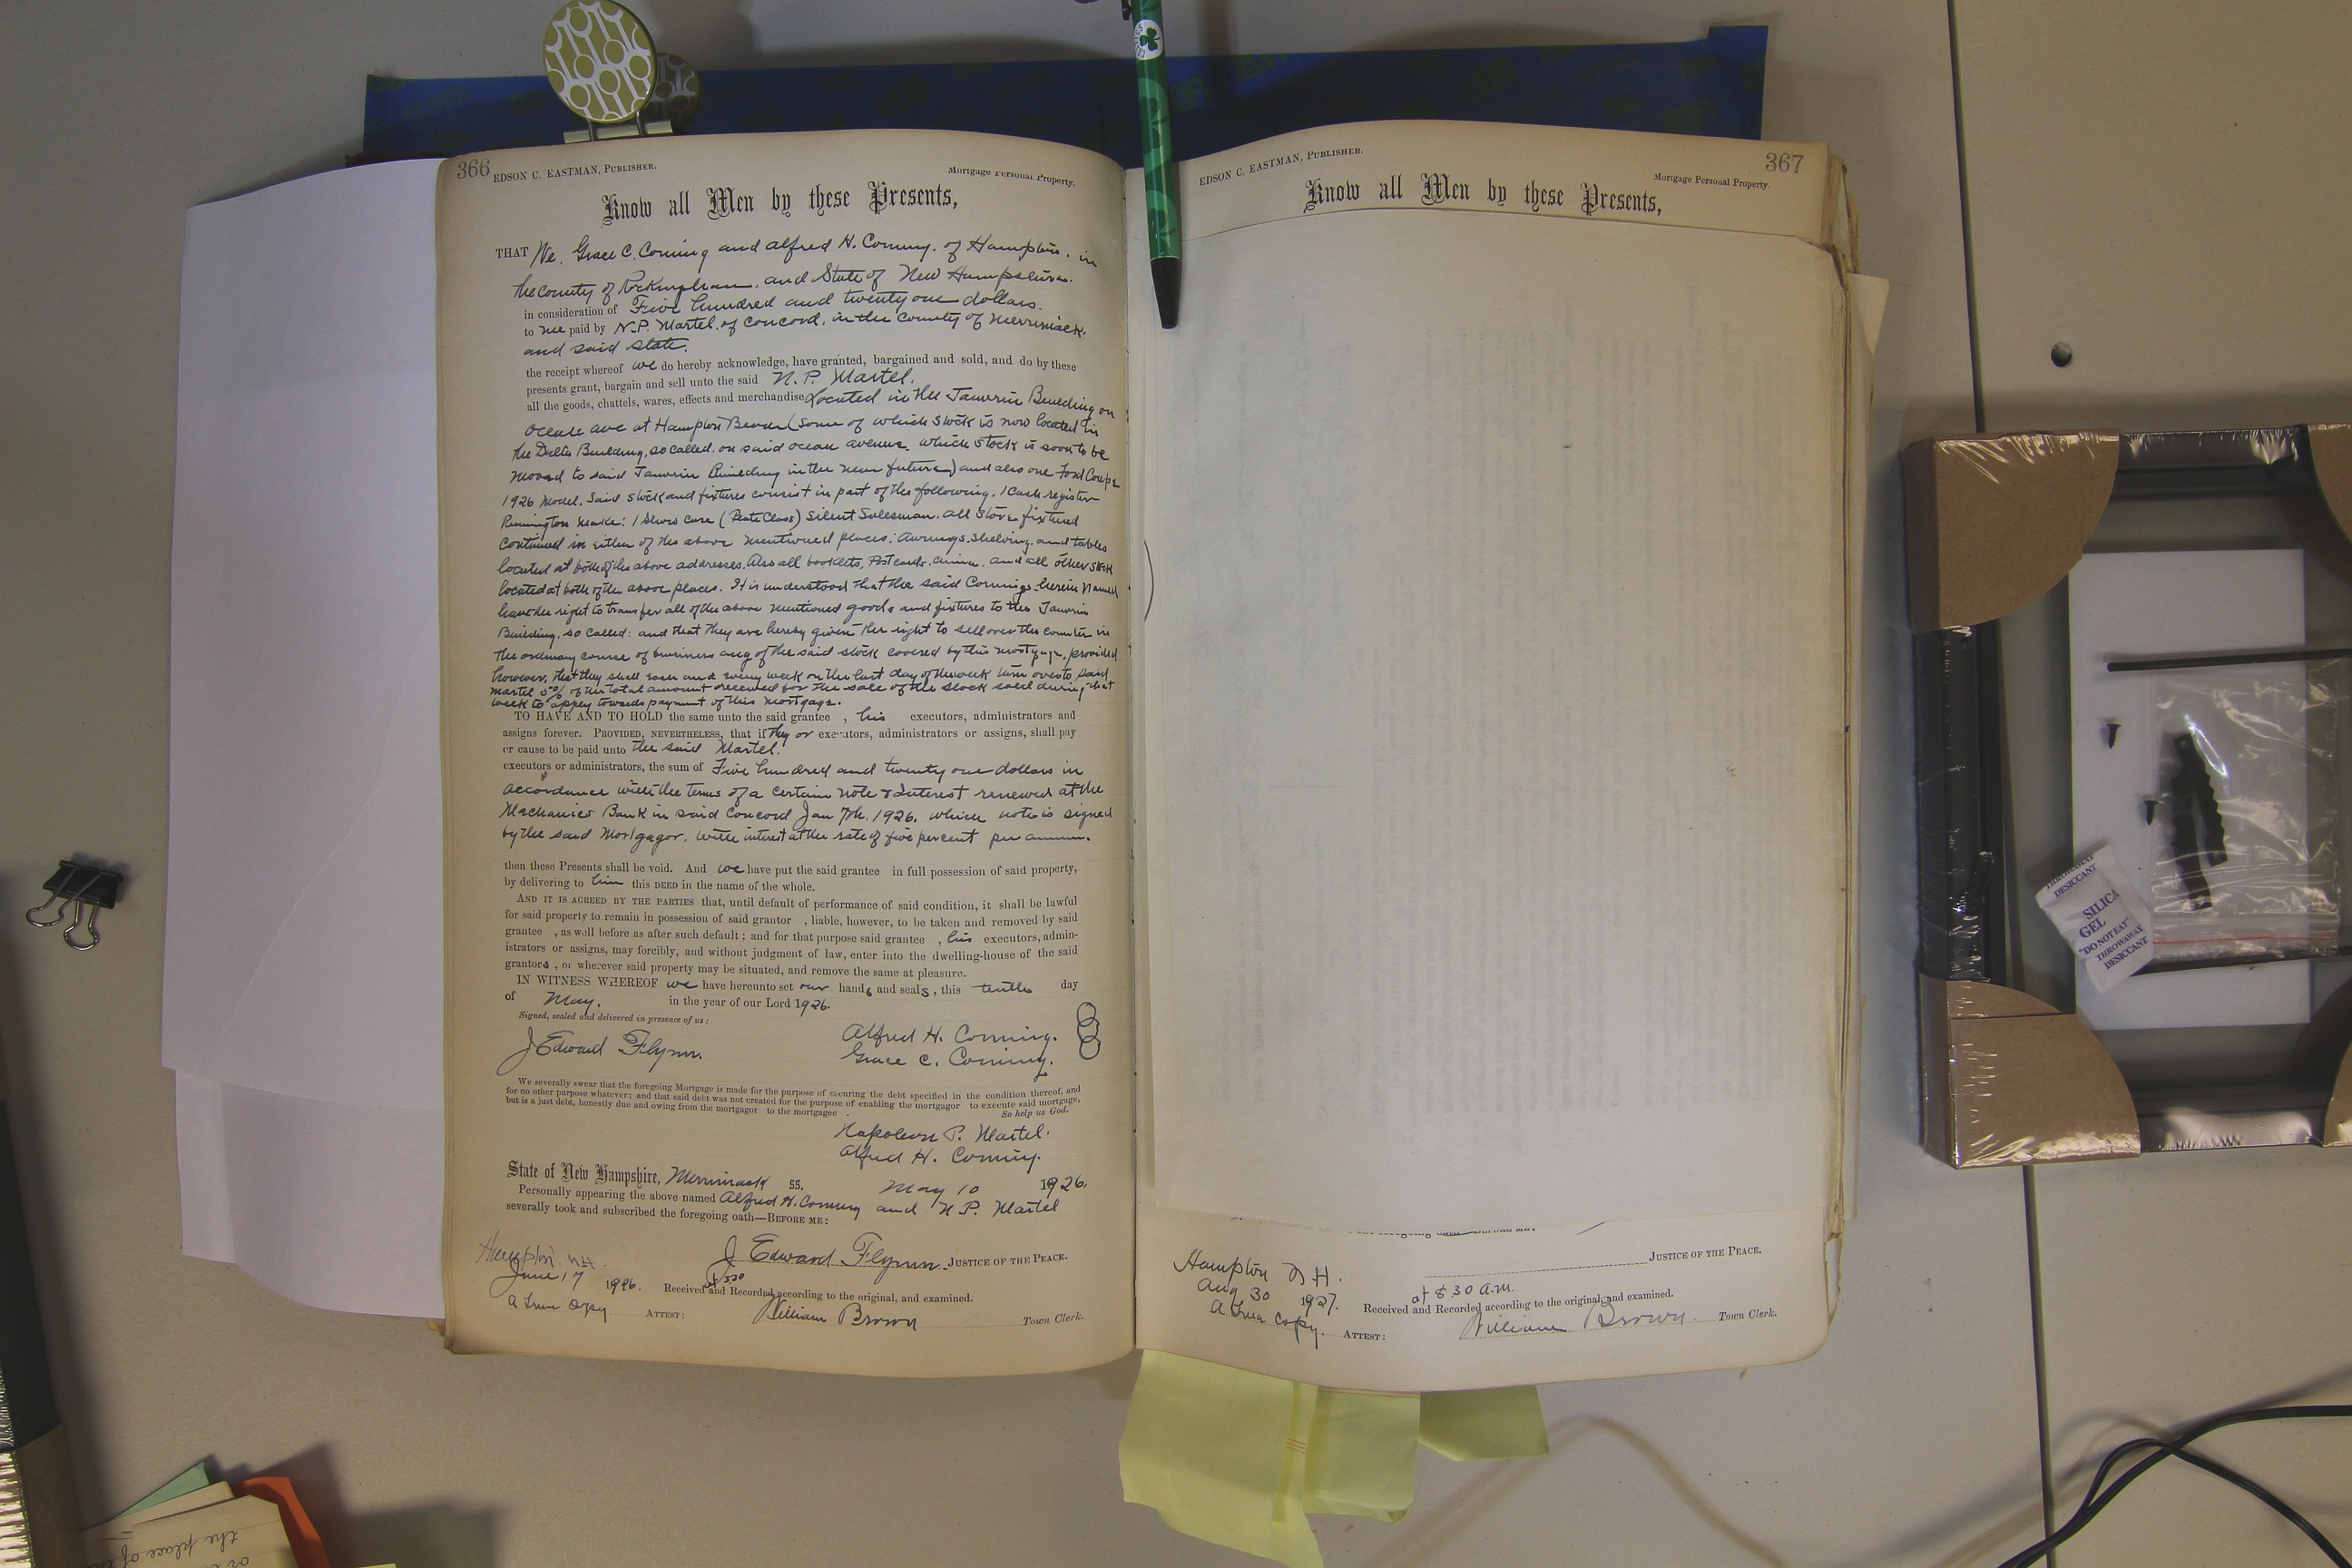 366 EDSON C. EASTMAN, PUBLISHER. Mortgage Personal Property.
Know all Men by these Presents,
THAT We, Grace C. Corning and Alfred H. Corning, of Hampton, in
the County of Rockingham, and State of New Hampshire.
in consideration of Five hundred and twenty one dollars.
to me paid by N.P. Martel, of Concord, in the County of Merrimack.
and said state.
the receipt whereof we do hereby acknowledge, have granted, bargained and sold, and do by these
presents grant, bargain and sell unto the said N. P. Martel.
all the goods, chattels, wares, effects and merchandise Located in the Janvrin Building on
Ocean ave at Hampton Beach (some of which stock is now located in
the Delta Building, so called, on said ocean avenue, which stock is soon to be
moved to said Janvrin Building in the near future) and also one Ford Coupe
1926 Model. Said stock and fixtures consist in part of the following. 1 Cash register
Remington make: 1 Show case (Plate Glass) Silent Salesman. all store fixtures
contained in either of the above mentioned places: Awnings, shelving, and tables
located at both of the above addresses. Also all booklets, Post cards, and all other stock
located at both of the above places. It is understood that the said Cornings herein named
have the right to transfer all of the above mentioned goods and fixtures to the Janvrin
Building, so called: and that they are hereby given the right to sell over the counter in
the ordinary course of business any of the said stock covered by this mortgage, provided
however, that they shall each and every week on the last day of the week turn over to said
Martel 50% of the total amount received for the sale of the stock sold during that
week to apply towards payment of this mortgage.
TO HAVE AND TO HOLD the same unto the said grantee , his executors, administrators and
assigns forever. PROVIDED, NEVERTHELESS, that if they or executors, administrators or assigns, shall pay
or cause to be paid unto the said Martel.
executors or administrators, the sum of Five hundred and twenty one dollars in
accordance with the terms of a certain note & Interest renewed at the
Mechanics Bank in said Concord Jan 7th, 1926. which note is signed
by the said Mortgagor. with interest at the rate of five percent per annum.
then these Presents shall be void. And we have put the said grantee in full possession of said property,
by delivering to him this DEED in the name of the whole.
AND IT IS AGREED BY THE PARTIES that, until default of performance of said condition, it shall be lawful
for said property to remain in possession of said grantor , liable, however, to be taken and removed by said
grantee , as well before as after such default; and for that purpose said grantee , his executors, admin-
istrators or assigns, may forcibly, and without judgment of law, enter into the dwelling-house of the said
grantors , or wherever said property may be situated, and remove the same at pleasure.
IN WITNESS WHEREOF we have hereunto set our hands and seals, this tenth day
of May. in the year of our Lord 1926.
Signed, sealed and delivered in presence of us:
J Edward Flynn. Alfred H. Corning.
Grace C. Corning.
We severally swear that the foregoing Mortgage is made for the purpose of securing the debt specified in the condition thereof, and
for no other purpose whatever; and that said debt was not created for the purpose of enabling the mortgagor to execute said mortgage,
but is a just debt, honestly due and owing from the mortgagor to the mortgagee . So help us God.
Napoleon P. Martel.
Alfred H. Corning.
State of New Hampshire, Merrimack SS. May 10 1926.
Personally appearing the above named Alfred H. Corning and N. P. Martel
severally took and subscribed the foregoing oath—BEFORE ME:
J Edward Flynn. JUSTICE OF THE PEACE.
Hampton. N.H.
June 17 1926. at 3.30 Received and Recorded according to the original, and examined.
A true copy ATTEST: William Brown Town Clerk.
EDSON C. EASTMAN, PUBLISHER. Mortgage Personal Property. 367
Know all Men by these Presents,
BEFORE ME:
JUSTICE OF THE PEACE.
Hampton N.H.
Aug 30 1927. at 8.30 a.m. Received and Recorded according to the original, and examined.
A true copy. ATTEST: William Brown. Town Clerk.
THROWAWAY
DESICCANT
SILICA
GEL
"DO NOT EAT"
THROWAWAY
DESICCANT
the place of